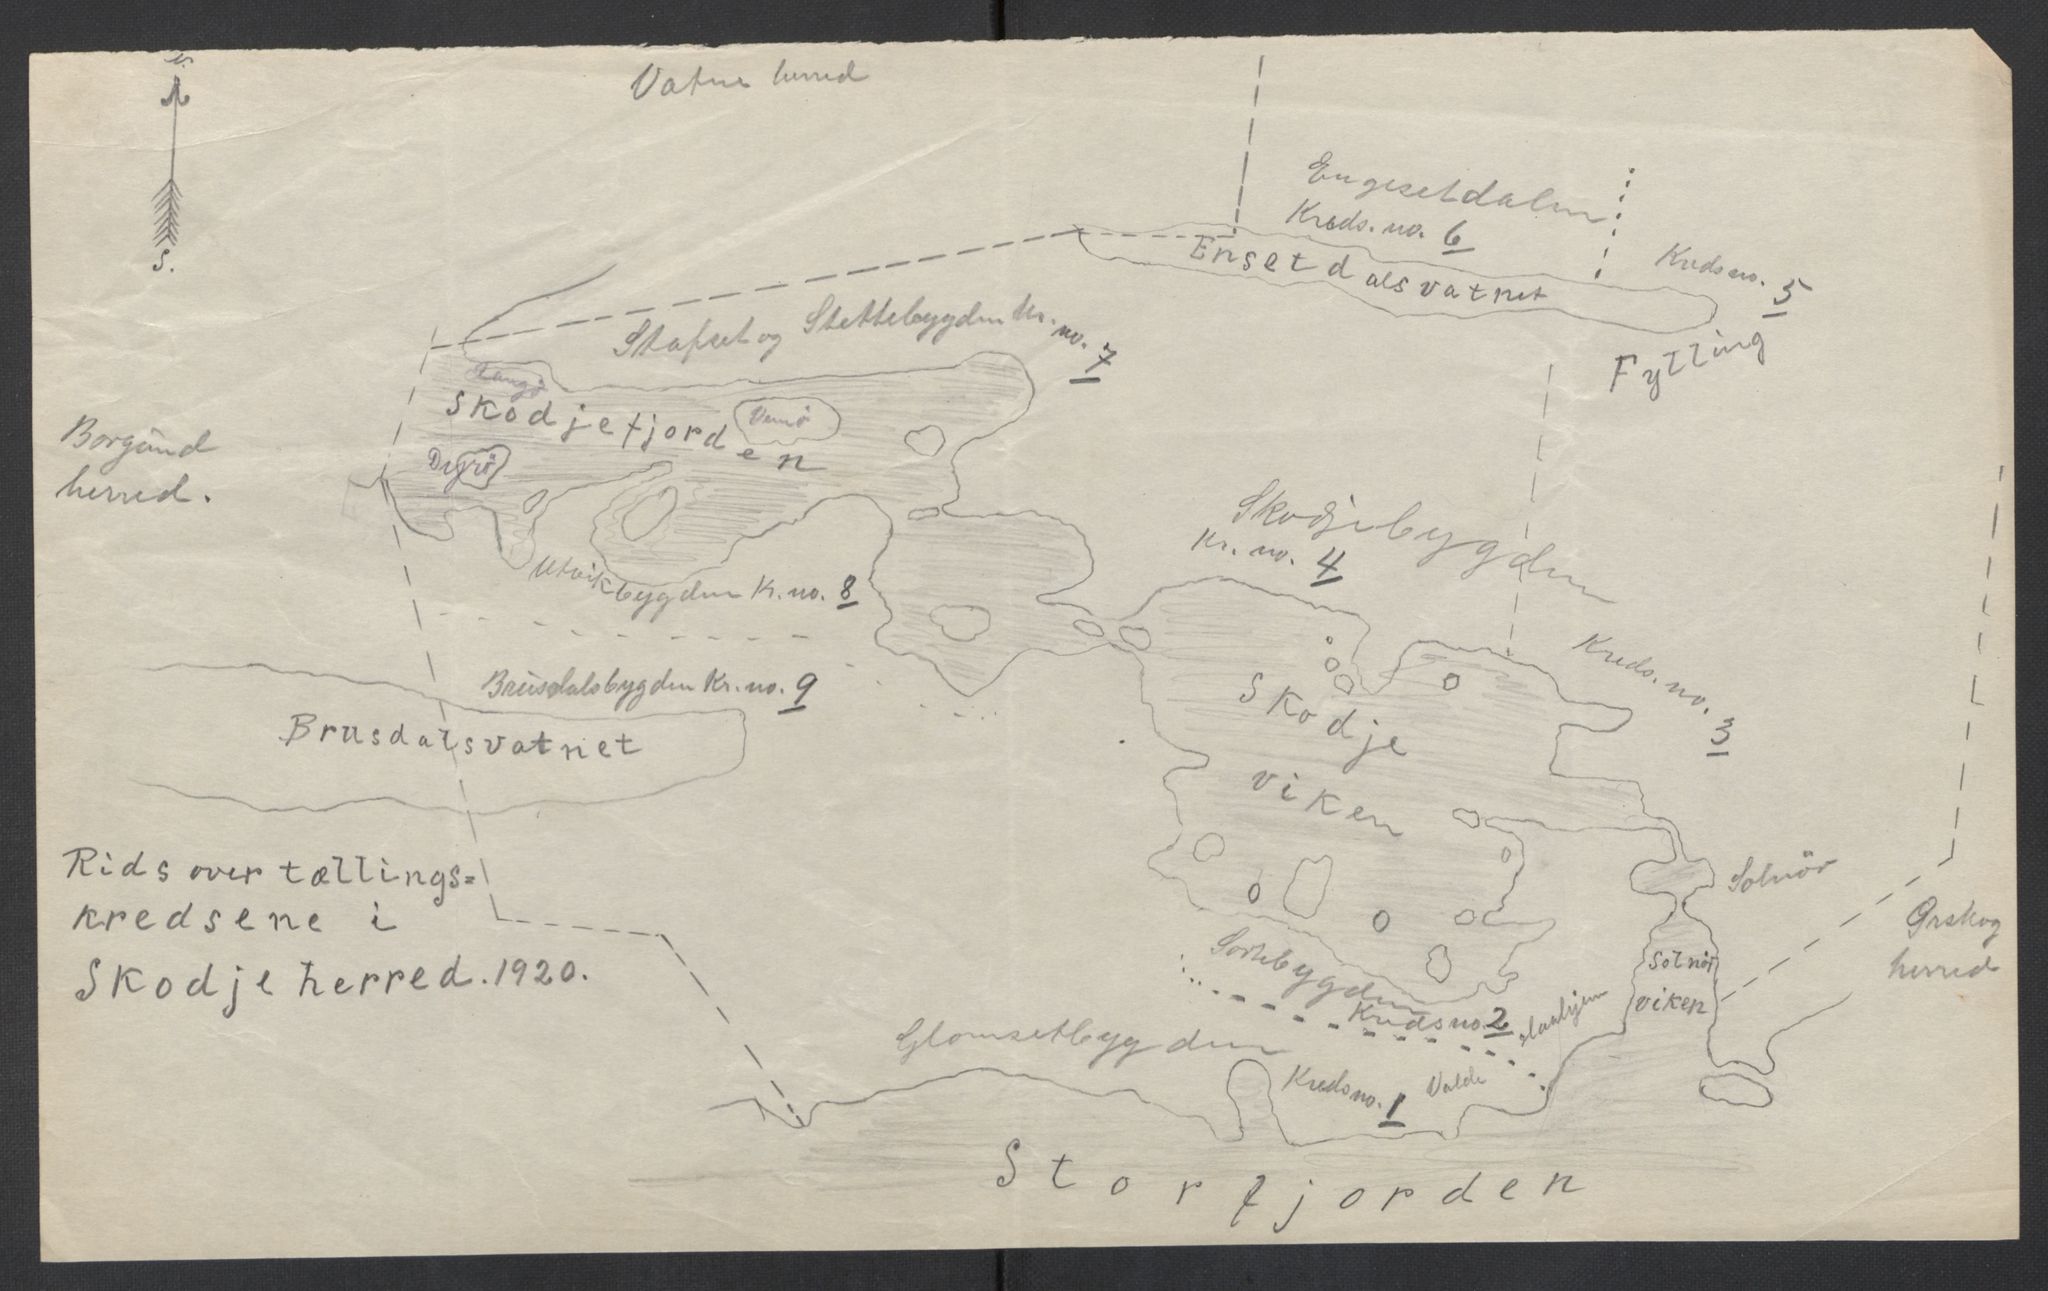 N.
S.
Vatne herred
Engesetdalen
Kreds. no. 6
Ensetdalsvatnet
Kreds no. 5
Fylling
Stafset og Stettebygden Kr. no. 7
Langö
Skodjefjorden
Vemö
Dyrö
Borgund
herred.
Skodjebygden
Kr. no. 4
Utvikbygden Kr. no. 8
Kreds. no. 3
Brusdalsbygden Kr. no. 9
Skodje
viken
Brusdalsvatnet
Rids over tællings=
kredsene i
Skodje herred. 1920.
Solnör
Ørskog
herred
Solnör
viken
Sortebygden
Kreds no. 2
Glomsetbygden
Kreds no. 1
Valde
Storfjorden